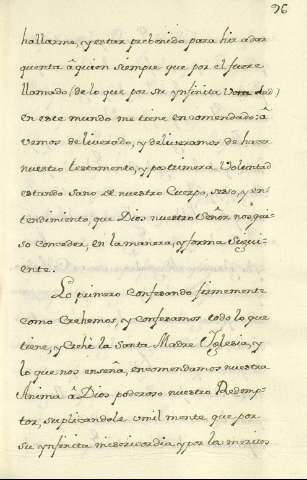 96
hallarme, y estar prebenido para hir a dar
quenta â quien siempre que por el fuere
llamado (de lo que por su ynfinita
en este mundo me tiene encomendado) â
vemos deliverado, y deliveramos de hacer
nuestro testamento, y postrimera Voluntad
estando sano de nuestro Cuerpo, seso, y en-
tendimiento, que Dios nuestro Señor nos qui-
so conceder, en la manera, y forma Sigui-
ente.
Lo primero Confesando firmemente
como Crehemos, y Confesamos todo lo que
tiene, y Crehe la Santa Madre Yglesia, y
lo que nos enseña, encomendamos nuestra
Anima â Dios poderoso nuestro Redemp-
tor, suplicandole umilmente que por
su ynfinita misericordia, y por los meritos